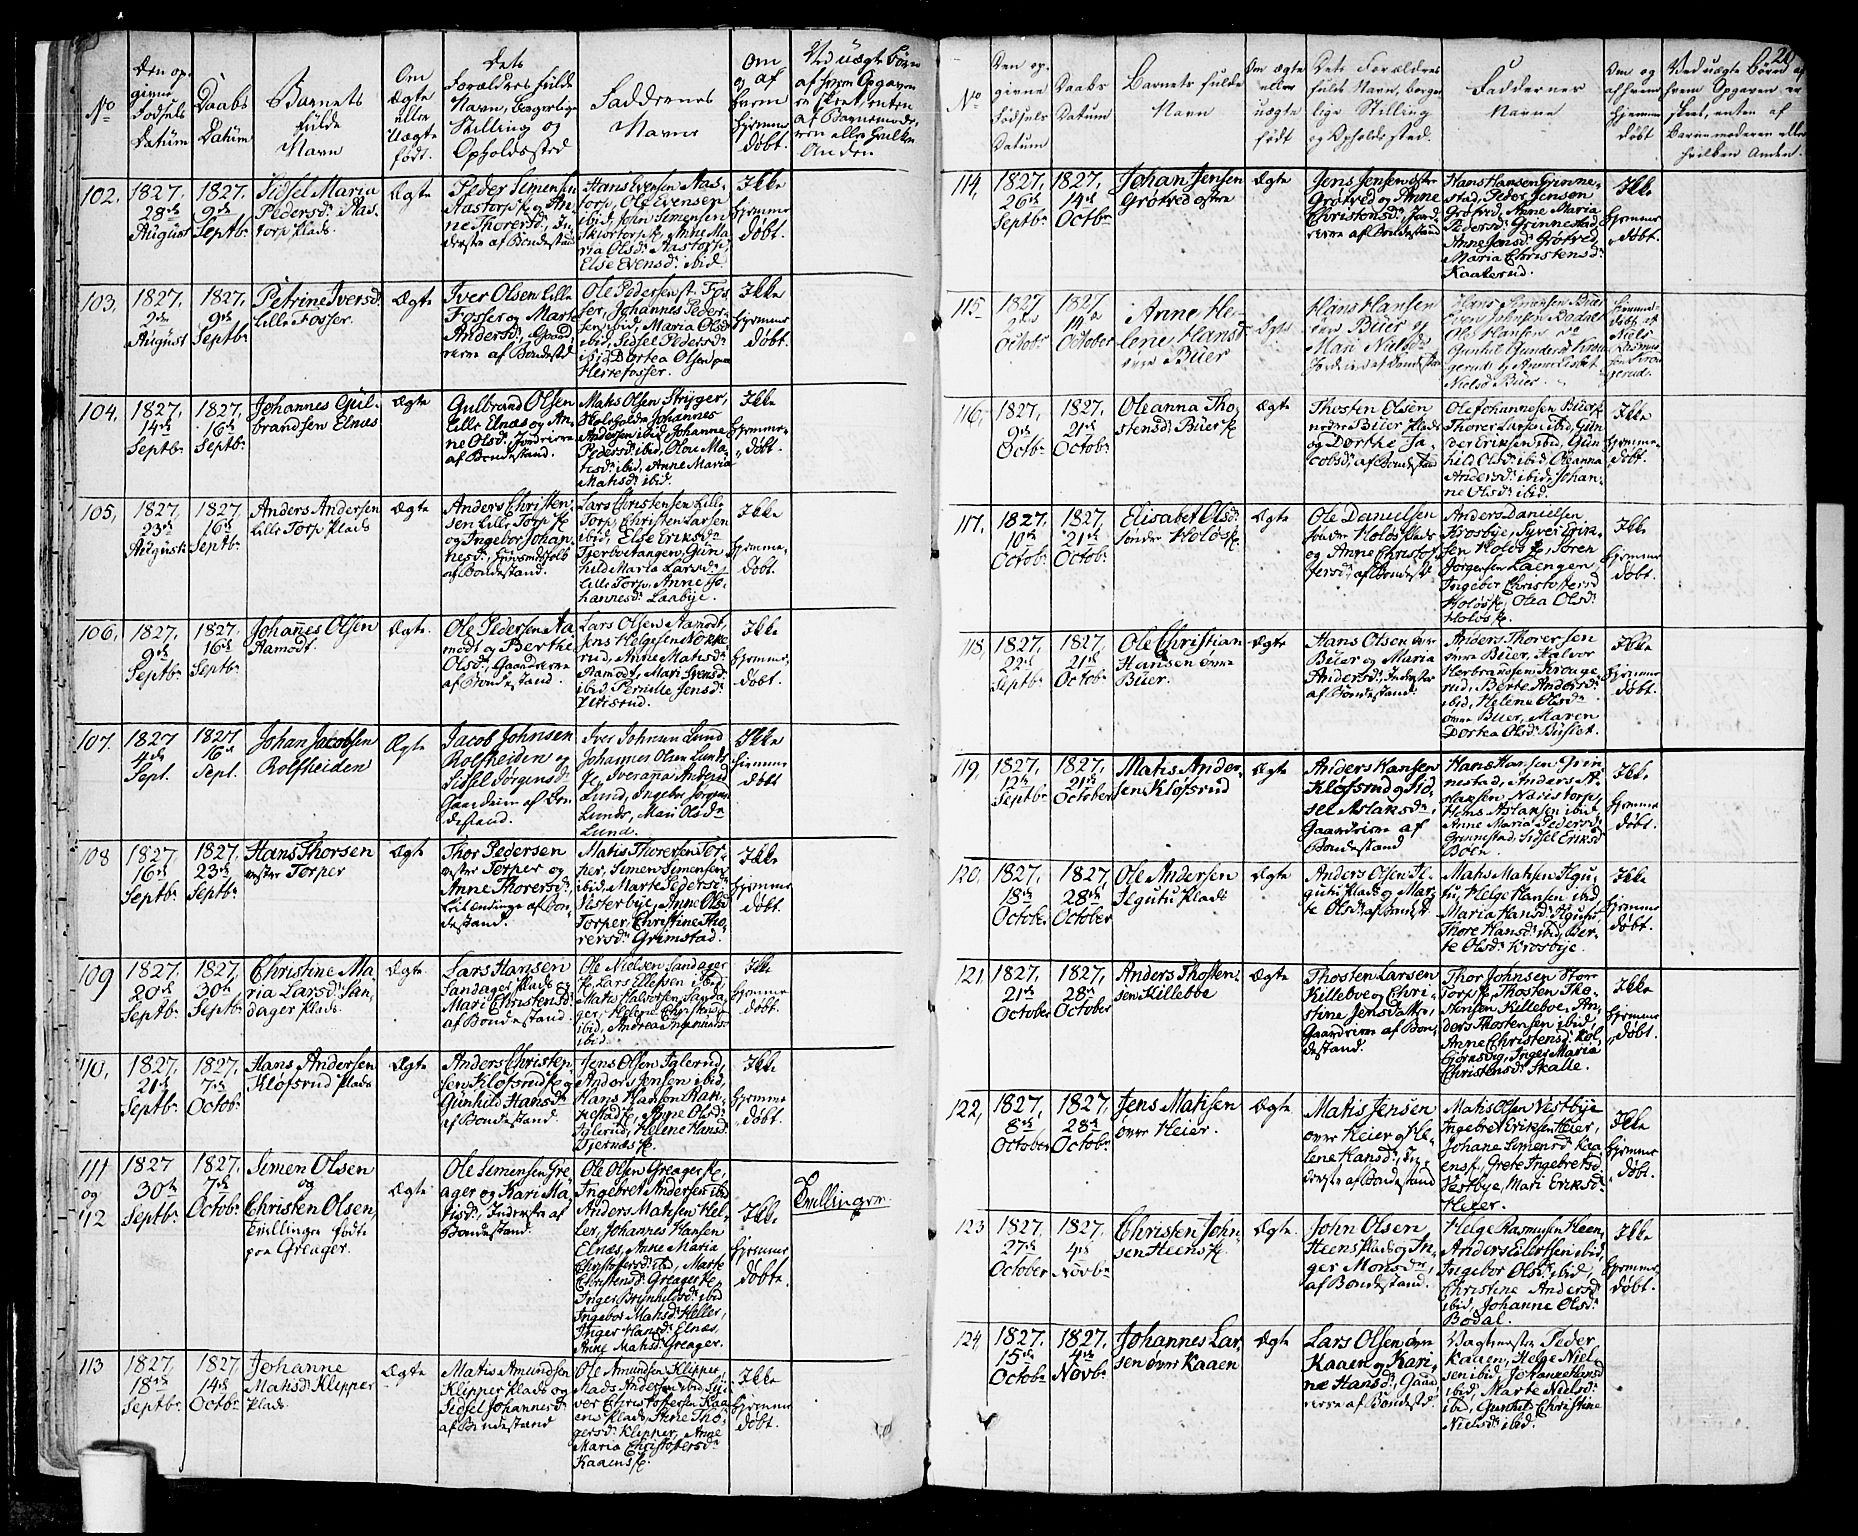 No
Den op-
givne
Fødsels
Datum
Daabs
Datum
Barnets
fulde
Navn
Om
Ægte
eller
Uægte
født.
Dets
Forældres fulde
Navn, borgerlige
Stilling og
Opholdssted
Faddernes
Navne
Om
og af
hvem
hjemme
døbt.
Ved uægte Børn
af hvem Opgaven
er skeet, enten
af Barnemode-
ren eller hvilken
Anden
102.
1827.
28de
August
1827.
9de
Septbr
Sidsel Maria
Pedersdr Aas-
torp plads.
Ægte
Peder Simensen
Aastorp pl. og An-
ne Thorersdr, In-
derster af Bondestand
Hans Evensen Aas-
torp, Ole Evensen
ibid, John Simensen
Skiortorp pl., Anne Ma-
ria Olsdr Aastorp,
Else Evensdr ibid.
Ikke
hjemme
døbt.
103,
1827,
2den
August
1827.
9de
Septbr
Petrine Iversdr
Lille Fosser.
Ægte
Iver Olsen Lille
Fosser og Marte
Andersdr, Gaard-
rerne af Bondestd
Ole Pedersen st. Fos-
ser, Johannes Peder-
sen ibid, Maria Olsdr
ibid, Sidsel Pedersdr
ibid Dortea Olsen paa
Herrefosser.
Ikke
hjemme
døbt.
104,
1827.
14de
Septbr
1827.
16de
Septbr
Johannes Gul-
brandsen Elnæs
Ægte
Gulbrand Olsen
Lille Elnæs og An-
ne Olsdr, Jordeierne
af Bondestand.
Matis Olsen Stryger,
Johannes
Andersen ibid, Johanne
Pedersdr ibid, Olou Ma-
tisdr ibid, Anne Maria
Matisdr ibid.
Ikke
hjemme-
døbt.
105,
1827.
23de
August
1827.
16de
Septbr
Anders Andersen
Lille Torp plads
Ægte
Anders Christen-
sen Lille Torp pl
og Ingebor Johan-
nesdr, Huusmandsfolk
af Bondestand.
Lars Christensen Lille
Torp, Christen Larsen
ibid, Else Eriksdr
Tjerbotangen, Gun-
hild Maria Larsdr
Lille Torp, Anne Jo-
hannesdr Laabye.
Ikke
hjemme-
døbt.
106,
1827.
9de
Septbr
1827.
16de
Septbr
Johannes Olsen
Aamodt.
Ægte.
Ole Pedersen Aa-
modt og Berthe
Olsdr, Gaardeierne
af Bondestand.
Lars Olsen Aamodt,
Jens Helgesen Kokke-
rud, Anne Matisdr
Aamodt, Mari Svensdr
ibid, Pernille Jensdr
Ikke
hjemme-
døbt.
107.
1827
4de
Sept.
1827
16de
Sept.
Johan Jacobsen
Rolfsheiden
Ægte
Jacob Johnsen
Rolfsheiden og
Sidsel Jørgensdr
Gaardeierne af Bon-
destand.
Iver Johnsen Lund
Johannes Olsen Lunds
pl, Iverana Andersdr
Lund, Ingebor Jørgensdr
Lunds, Mari Olsdr
Lund.
Ikke
hjemme
døbt
108
1827.
16de
Septbr
1827.
23de
Septbr
Hans Thorsen
vester Torper
Ægte
Thor Pedersen
vester Torper og
Anne Thorersdr,
Leilendinge af Bon-
destand.
Matis Thorersen Tor-
per, Simen Simensen
ibid, Marte Pedersdr
Vesterbye, Anne Olsdr
Torper, Christine Tho-
rersdr Grimstad.
Ikke
hjemme
døbt.
109
1827.
20de
Septbr
1827.
30te
Septbr
Christine Ma-
ria Larsdr San-
dager plads.
Ægte
Lars Hansen
Sandager plads og
Mari Christensdr
af Bondestand.
Ole Nielsen Sandager
pl, Lars Ellefsen ibid,
Matis Halvorsen Sanda-
ger, Helene Christensdr
ibid, Andrea
ibid.
Ikke
hjemme
døbt.
110.
1827
21de
Septbr
1827.
7de
Octobr
Hans Andersen
Kløfsrud plads
Ægte
Anders Christen-
sen Kløfsrud pl og
Gunhild Hansdr
af Bondestand.
Jens Olsen Iglerud,
Anders Jensen ibid,
Hans Hansen Ran-
kestad pl, Anne Olsdr
Iglerud, Helene Hansdr
Tjernæs pl.
Ikke
hjemme
døbt.
111
og
112
1827
30te
Septbr
1827.
7de
Octobr
Simen Olsen
og
Christen Olsen,
Tvillinger fødte
paa Greager.
Ægte
Ole Simensen Gre-
ager og Kari Ma-
tisdr, Inderster af
Bondestand.
Ole Olsen Greager pl,
Ingebret Andersen ibid
Anders Matisen Hel-
ler, Johannes Hansen
Elnæs, Anne Maria
Christofersdr ibid, Marte
Christensdr Greager pl,
Inger Brynhildsdr ibid
Ingebor Matisdr Heller,
Inger Hansdr Elnæs,
Anne Matisdr Greager.
Ikke
hjemme
døbte.
Tvillinger
113
1827
18de
Septbr
1827
14de
Octbr
Johanne
Matisdr Klipper
plads.
Ægte
Matis Amundsen
Klipper plads og
Sidsel Johannesdr
af Bondestand
Ole Amundsen Klipper,
Mads Andersen ibid, Sy-
ver Christofersen Kaa-
ens plads, Anne Tho-
gersdr Klipper, Anne
Maria Christofersdr
Kaaens pl.
Ikke
hjemme
døbt.
20
No
Den op-
givne
Fødsels
Datum
Daabs
Datum
Barnets fulde
Navn
Om ægte
eller
uægte
født
Dets Forældres
fulde Navn, borger-
lige Stilling
og Opholdssted.
Faddernes
Navne
Om og
af hvem
hjemme
døbt
Ved uægte Børn af
hvem Opgaven er
skeet, enten af
Barnemoderen eller
hvilken Anden.
114,
1827.
26de
Septbr
1827.
14de
Octbr
Johan Jensen
Grøtved østre
Ægte
Jens Jensen østre
Grøtved og Anne
Christensdr, Jord-
eierne af Bondestand
Hans Hansen Grinne-
stad, Peder Jensen
Grøtvet, Anne Maria
Pedersdr Grinnestad,
Anne Jensdr Grøtved,
Maria Christensdr
Kaaterud.
Ikke
hjemme
døbt.
115
1827
October
1827
14de
October
Anne He-
lene Hansdr
øvre Büer
Ægte
Hans Hansen
øvre Büer og
Mari Nielsdr
Jordeierne af Bondestand
Hans Simensen Büer
John Johnsen Bodal
Ole Hansen
Gunhil Gundersdr Kroug-
erud og Anne Lisbet
Nielsdr Büer.
Hjemme
døbt af
Niels
Rasmus-
sen Krou-
gerud.
116,
1827.
9de
Octbr
1827.
21de
Octobr
Oleanna Tho-
stensdr Büers pl
Ægte
Thosten Olsen
nedre Büer plads
og Dorthe Ja-
cobsdr, af Bondestand
Ole Johannesen Büers pl
Thorer Larsen ibid, Gun-
der Eriksen ibid, Gun-
hild Olsdr ibid, Oleanna
Andersdr ibid, Johan-
ne Olsdr ibid.
Ikke
hjemme-
døbt.
117,
1827.
10de
Octobr
1827.
21de
Octobr
Elisabet Olsdr
søndre Holøs pl.
Ægte
Ole Danielsen
søndre Holøs plads
og Anne Christof-
fersdr, af Bondest
Anders Danielsen
Krosbye, Syver Erik-
sen Holøs pl, Søren
Jørgensen Laengen
Ingebor Christofersdr
Holøs pl, Olea Olsdr
Holøs pl.
Ikke
hjemme
døbt.
118,
1827.
22de
Septbr
1827,
21de
Octobr
Ole Christian
Hansen øvre
Büer.
Ægte
Hans Olsen øvre
Büer og Maria
Andersdr, Inderster
af Bondestand.
Anders Thorersen
øvre Büer, Halvor
Herbrandsen Krouge-
rud, Berte Andersdr
ibid, Helene Olsdr
øvre Büer, Maren
Dortea Olsdr Buslet.
Ikke
hjemme
døbt.
119,
1827,
12te
Septbr
1827.
21de
October
Matis Ander-
sen Kløfsrud
Ægte
Anders Hansen
Kløfsrud og Sid-
sel Aslaksdr,
Gaardeierne af
Bondestand
Hans Hansen Grin-
nestad, Anders A-
slaksen Næristorp,
Hans Aslaksen ibid,
Anne Maria Pedersdr
Grinnestad, Sidsel Eriksdr
Bøen.
Ikke
hjemme
døbt.
120,
1827.
18de
October
1827
28de
October
Ole Andersen
Ilgutu plads
Ægte
Anders Olsen Il-
gutu plads og Mar-
te Olsdr, af Bondest
Matis Matisen Ilgu-
tu, Helge Hansen ibid
Maria Hansdr Ilgutu
Thore Hansdr ibid, Ber-
te Olsdr Krosbye.
Ikke
hjemme
døbt.
121.
1827.
21de
October
1827.
28de
October
Anders Thosten-
sen Killeboe
Ægte
Thosten Larsen
Killeboe og Chri-
stine Jensdatter,
Gaardeierne af Bon-
destand.
Thor Johnsen Stor
Torp pl, Thosten Tho-
stensen Killeboe, An-
ders Thostensen ibid,
Anne Christensdr Kol-
bjørnsvig, Inger Maria
Christensdr Skalle.
Ikke
hjemme
døbt.
122,
1827.
8de
October
1827.
28de
Octobr
Jens Matisen
øvre Heier.
Ægte
Matis Jensen
øvre Heier og He-
lene Hansdr, In-
derster af Bondestand
Matis Olsen Vestbye
Ingebret Eriksen Heier,
Johane Simensdr Kaa-
ens pl, Grete Ingebretsdr
Vestbye, Mari Eriksdr
Heier.
Ikke
hjemme
døbt.
123
1827.
27de
October
1827.
4de
Novbr
Christen John-
sen Heens pl.
Ægte.
John Olsen
Heens plads og In-
ger Monsdr,
af Bondestand.
Helge Rasmusen Heen,
Anders Eilertsen ibid,
Ingebor Olsdr ibid,
Christine Andersdr
ibid, Johanne Olsdr
Bodal.
Ikke
hjemme-
døbt.
124,
1827.
15de
Octobr
1827.
4de
Novbr
Johannes Lar-
sen øvre Kaaen
Ægte
Lars Olsen øvre
Kaaen og Kari-
ne Hansdr, Gaard-
eierne af Bondestd.
Vagtmester Peder
Kaaen, Helge Niel-
sen ibid, Johanne Hansdr
ibid, Marte Nielsdr
ibid, Gunhild Christine
Nielsdr ibid.